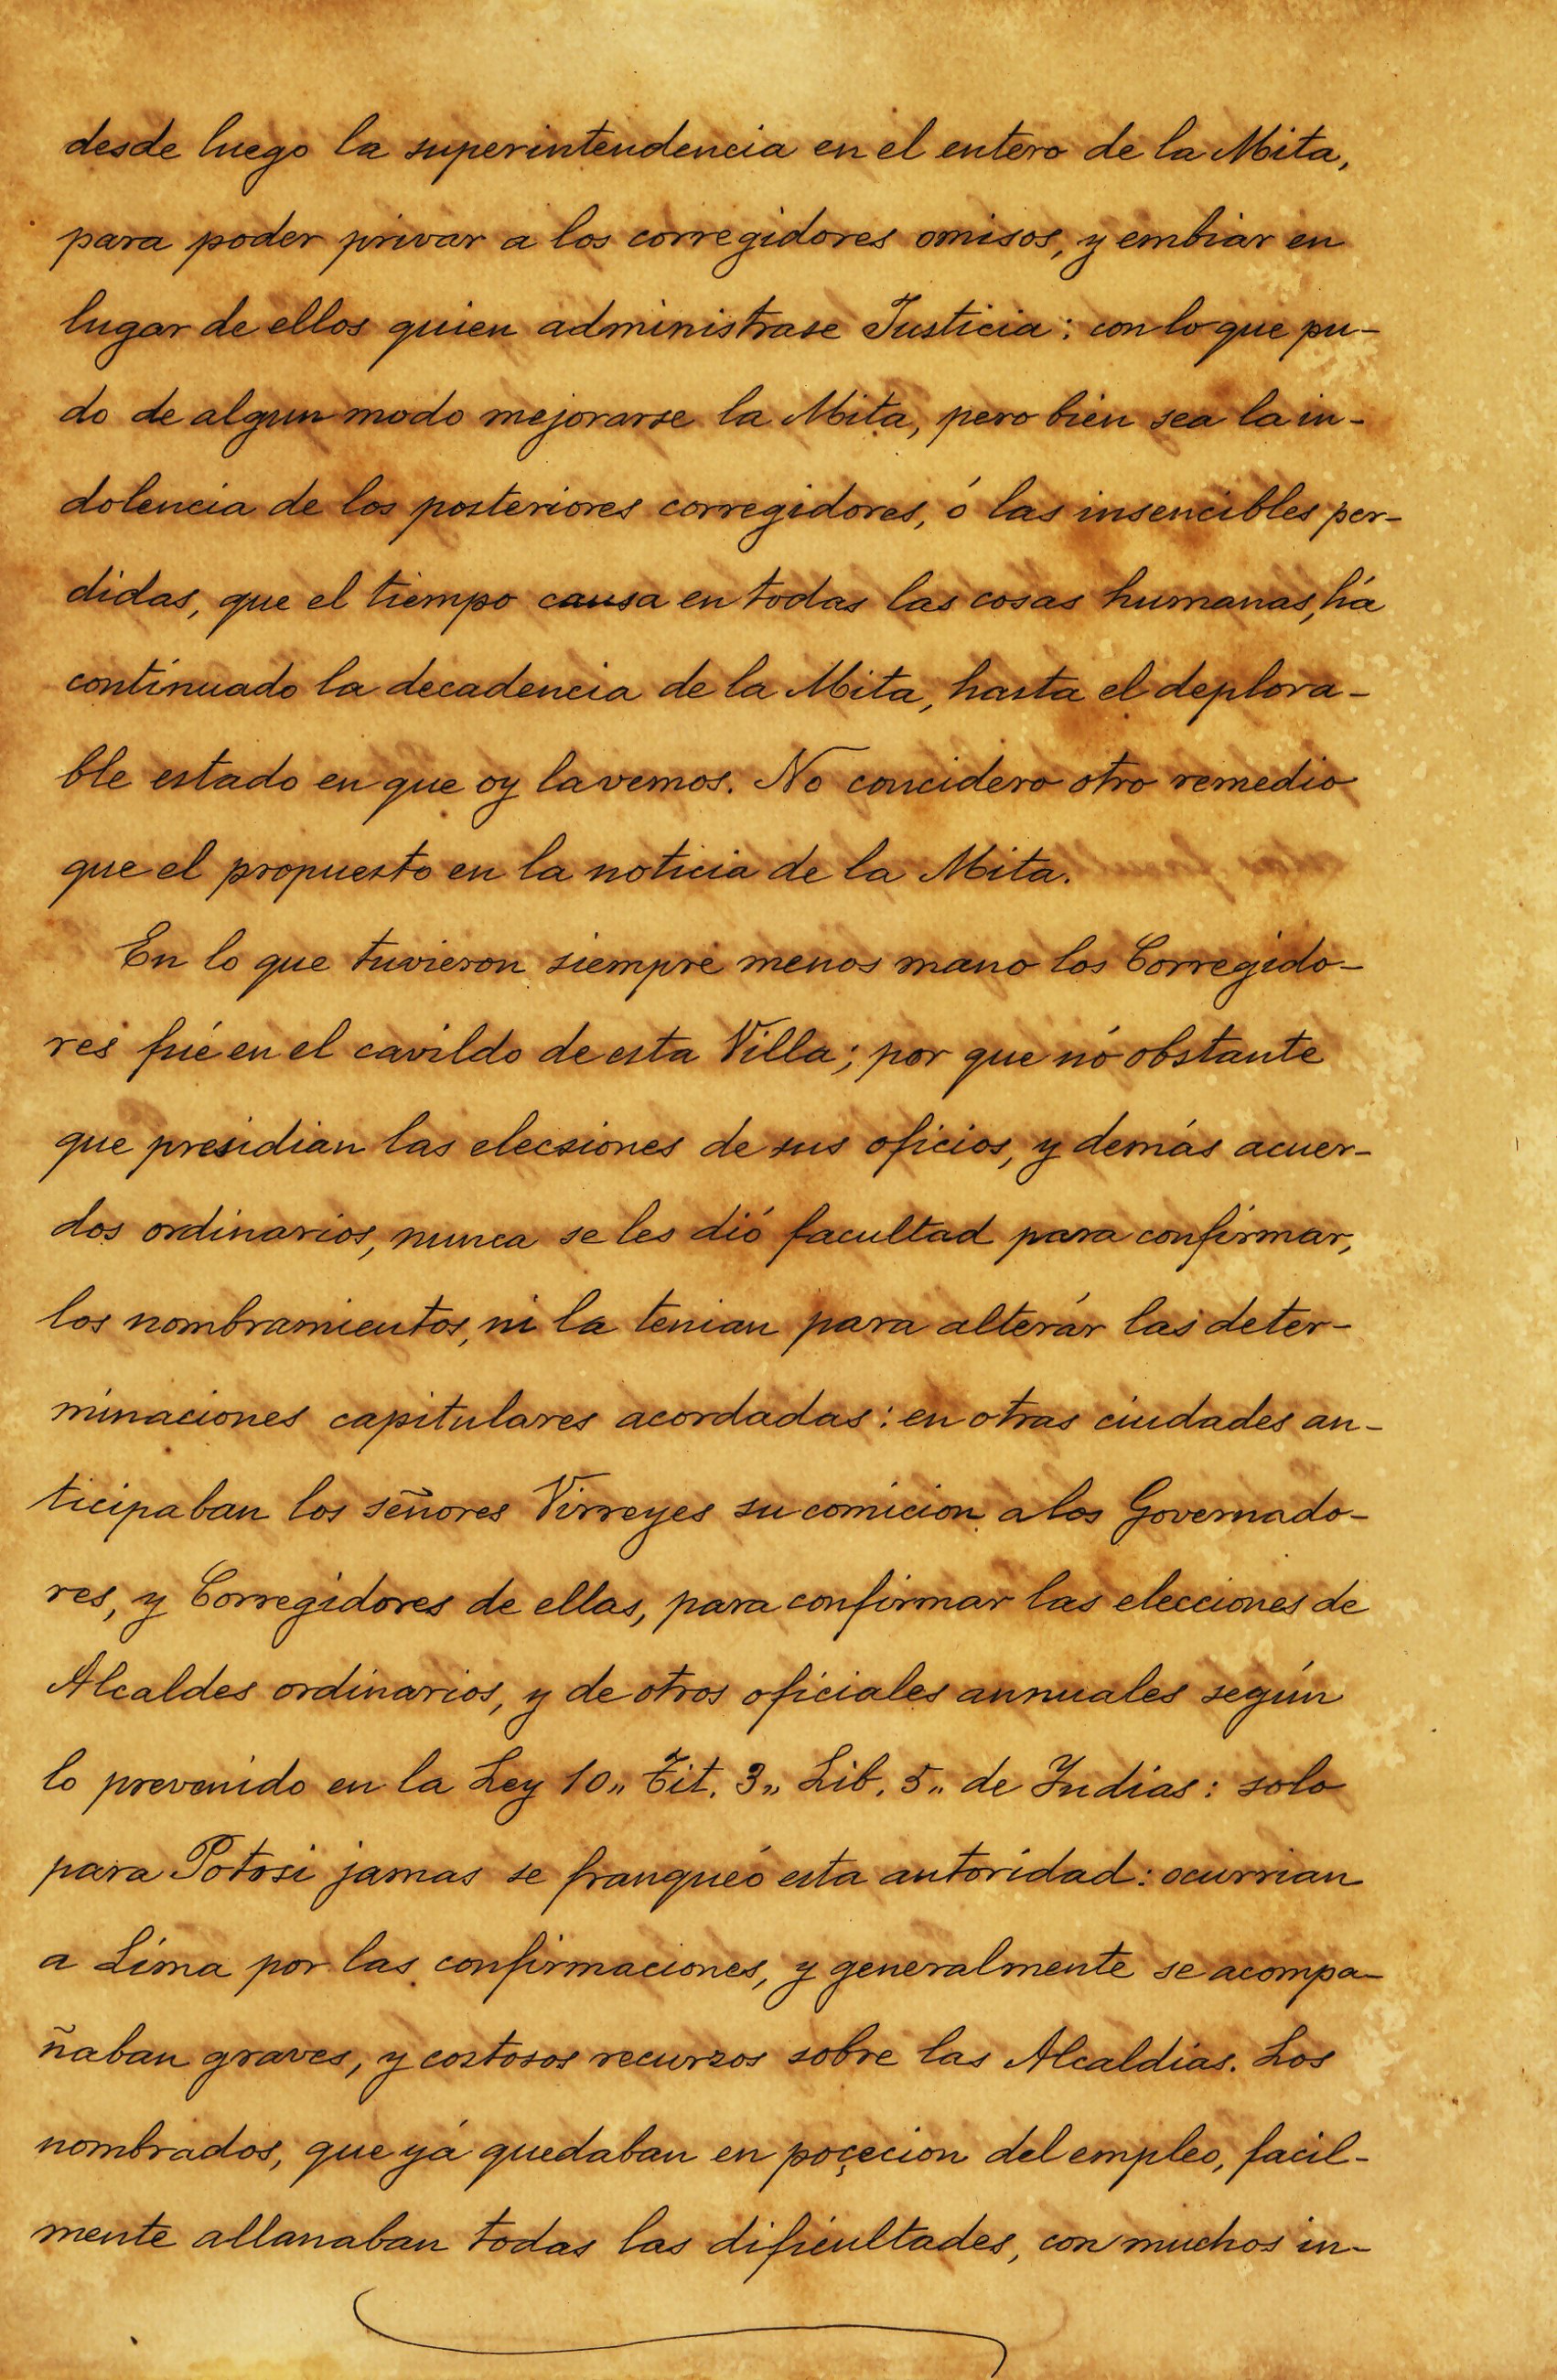 desde luego la superintendencia en el entero de la Mita,
para poder privar a los corregidores omisos, y embiar en
lugar de ellos quien administrase Justicia: con lo que pu-
do de algun modo mejorarse la Mita, pero bien sea la in-
dolencia de los posteriores corregidores, ó las insencibles per-
didas, que el tiempo causa en todas las cosas humanas, há
continuado la decadencia de la Mita, hasta el deplora-
ble estado en que oy la vemos. No concidero otro remedio
que el propuesto en la noticia de la Mita.
En lo que tuvieron siempre menos mano los Corregido-
res fué en el cavildo de esta Villa; por que nó obstante
que presidian las elecsiones de sus oficios, y demás acuer-
dos ordinarios, nunca se les dió facultad para confirmar,
los nombramientos, ni la tenian para alterár las deter-
minaciones capitulares acordadas: en otras ciudades an-
ticipaban los señores Virreyes su comicion a los Governado-
res, y Corregidores de ellas, para confirmar las elecciones de
Alcaldes ordinarios, y de otros oficiales annuales según
lo prevenido en la Ley 10,, Tit. 3,, Lib. 5,, de Indias: solo
para Potosi jamas se franqueó esta autoridad: ocurrian
a Lima por las confirmaciones, y generalmente se acompa-
ñaban graves, y costosos recursos sobre las Alcaldias. Los
nombrados, que yá quedaban en poçecion del empleo, facil-
mente allanaban todas las dificultades, con muchos in-